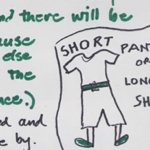 and there will be
ause
else
the
nce.)
ed and
e by.
SHORT
PANT
OR
LONG
SH